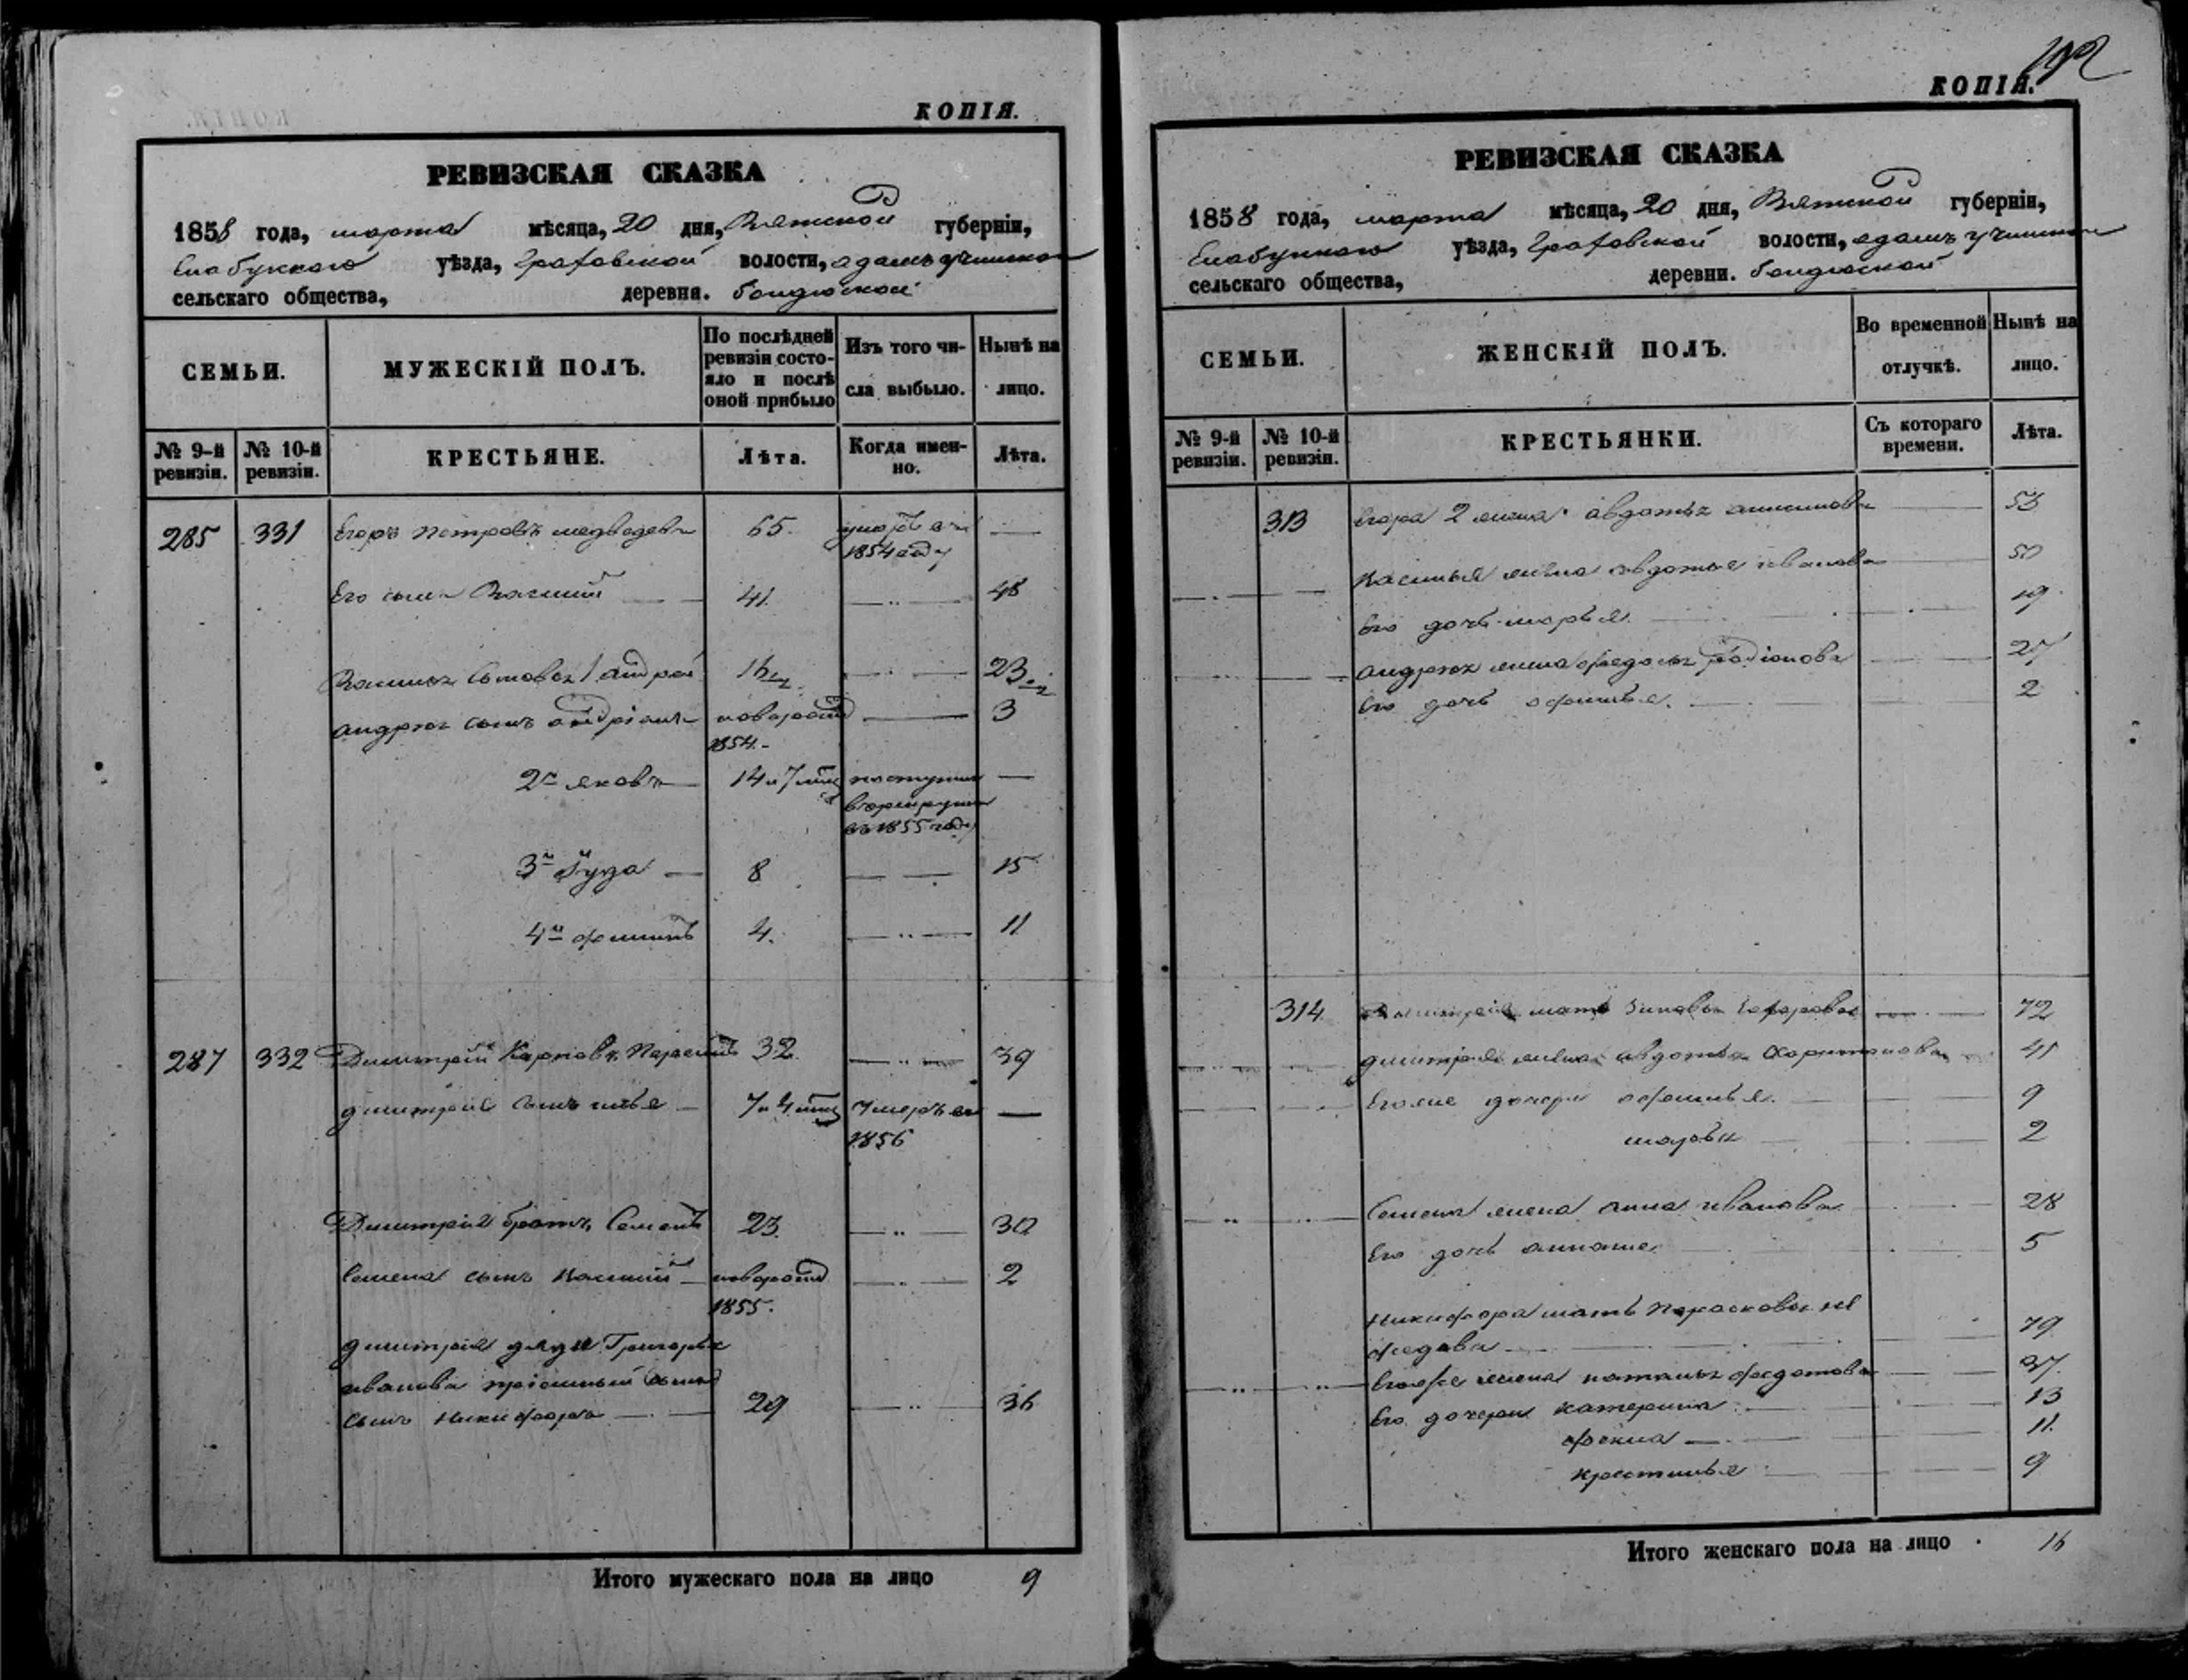 КОПІЯ.
РЕВИЗСКАЯ СКАЗКА
1858 года, марта мѣсяца, 20 дня, Вятской губерніи,
Елабужскаго уѣзда, Граховской волости,
сельскаго общества, деревня.
СЕМЬИ.
МУЖЕСКІЙ ПОЛЪ.
По послѣдней ревизіи состояло и послѣ оной прибыло
Изъ того числа выбыло.
Нынѣ на лицо.
№ 9-й ревизіи.
№ 10-й ревизіи.
КРЕСТЬЯНЕ.
Лѣта.
Когда именно.
Лѣта.
285 331 Егоръ Петровъ Медведевъ 65. 1854 году —
Его сынъ Василий 41. 48
Василья сыновья 1 андрей 16 23
андрея сынъ андріанъ новорожд 3
1854.
2й яковъ 14 и 7 поступилъ —
въ рекруты
въ 1855 году
3й Iуда 8 15
4й филипъ 4. 11
287 332 Димитрій Карповъ 32. 39
димитрія сынъ илья 7 и 4 умеръ въ —
1856
Димитрія братъ Семенъ 23. 30
Семена сынъ Василий новорожд 2
1855.
димитрія дяди Григорья
иванова пріемный
сынъ Никифоръ 29 36
Итого мужескаго пола на лицо 9
КОПІЯ.
РЕВИЗСКАЯ СКАЗКА
1858 года, марта мѣсяца, 20 дня, Вятской губерніи,
Елабужскаго уѣзда, Граховской волости,
сельскаго общества, деревни.
СЕМЬИ.
ЖЕНСКІЙ ПОЛЪ.
Во временной отлучкѣ.
Нынѣ на лицо.
№ 9-й ревизіи.
№ 10-й ревизіи.
КРЕСТЬЯНКИ.
Съ котораго времени.
Лѣта.
313 Егора 2 жена авдотья анисимова 53
Василья жена авдотья иванова 50
Его дочь марья 19
андрея жена федосья родіонова 27
Его дочь афимья. 2
314 Димитрія мать 72
димитрія жена авдотья Харитонова 41
Его же дочери афимья. 9
марья 2
Семена жена анна иванова 28
Его дочь 5
Никифора мать Парасковья не
федова 79
Его же жена наталья федотова 37.
Его дочери катерина 13
фекла 11.
крестинья 9
Итого женскаго пола на лицо 16